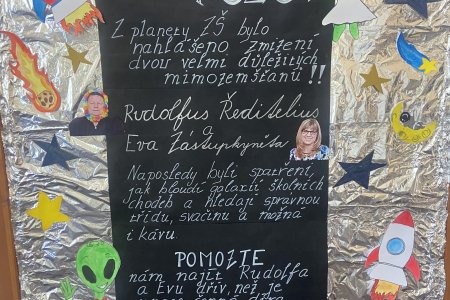 Z planety ZŠ bylo
nahlášeno zmizení
dvou velmi důležitých
mimozemšťanů !!
Rudolfus Ředitelius
a
Eva Zástupkyněta
Naposledy byli spatřeni,
jak bloudí galaxií školních
chodeb a hledají správnou
třídu, svačinu a možná
i kávu.
POMOZTE
nám najít Rudolfa
a Evu dřív, než je